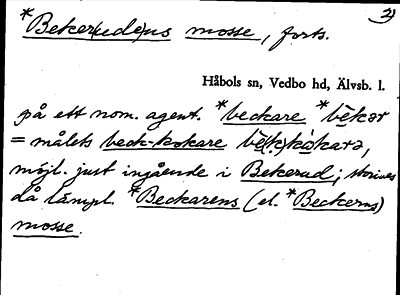 *Beker(ude)ns mosse, forts.
2)
Håbols sn, Vedbo hd, Älvsb. l.
på ett nom. agent. *beckare *bēkər
= målets beck-kokare bē(k)kòkarə,
möjl. just ingående i Bekerud; skrives
då lämpl. *Beckarens (el. *Beckerns)
mosse.